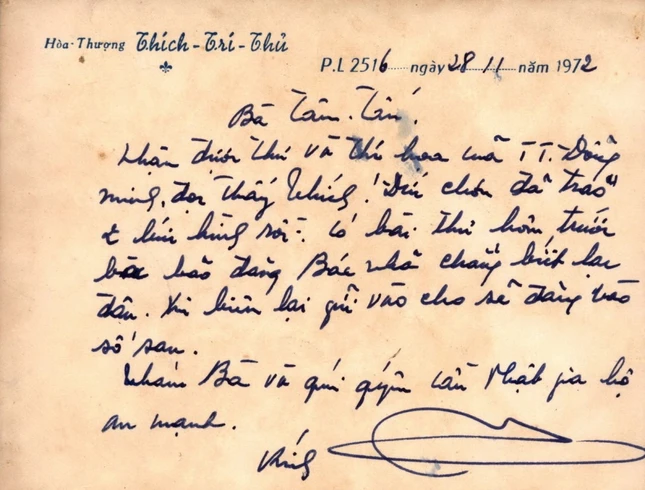 Hòa-Thượng Thích-Trí-Thủ
P.L 2516 ngày 28 11 năm 1972
Bà Tâm-Tấn!
Nhận được thư và thi hoa của TT. Đồng
minh, đọc thấy thích! Đức chơn đã trao
bài thi hôm trước
bà bảo đăng Bác nhã chẳng biết lạc
đâu. Xin biên lại gửi vào cho sẽ đăng vào
số sau.
Thăm Bà và quí quyến cầu Phật gia hộ
an mạnh.
Kính